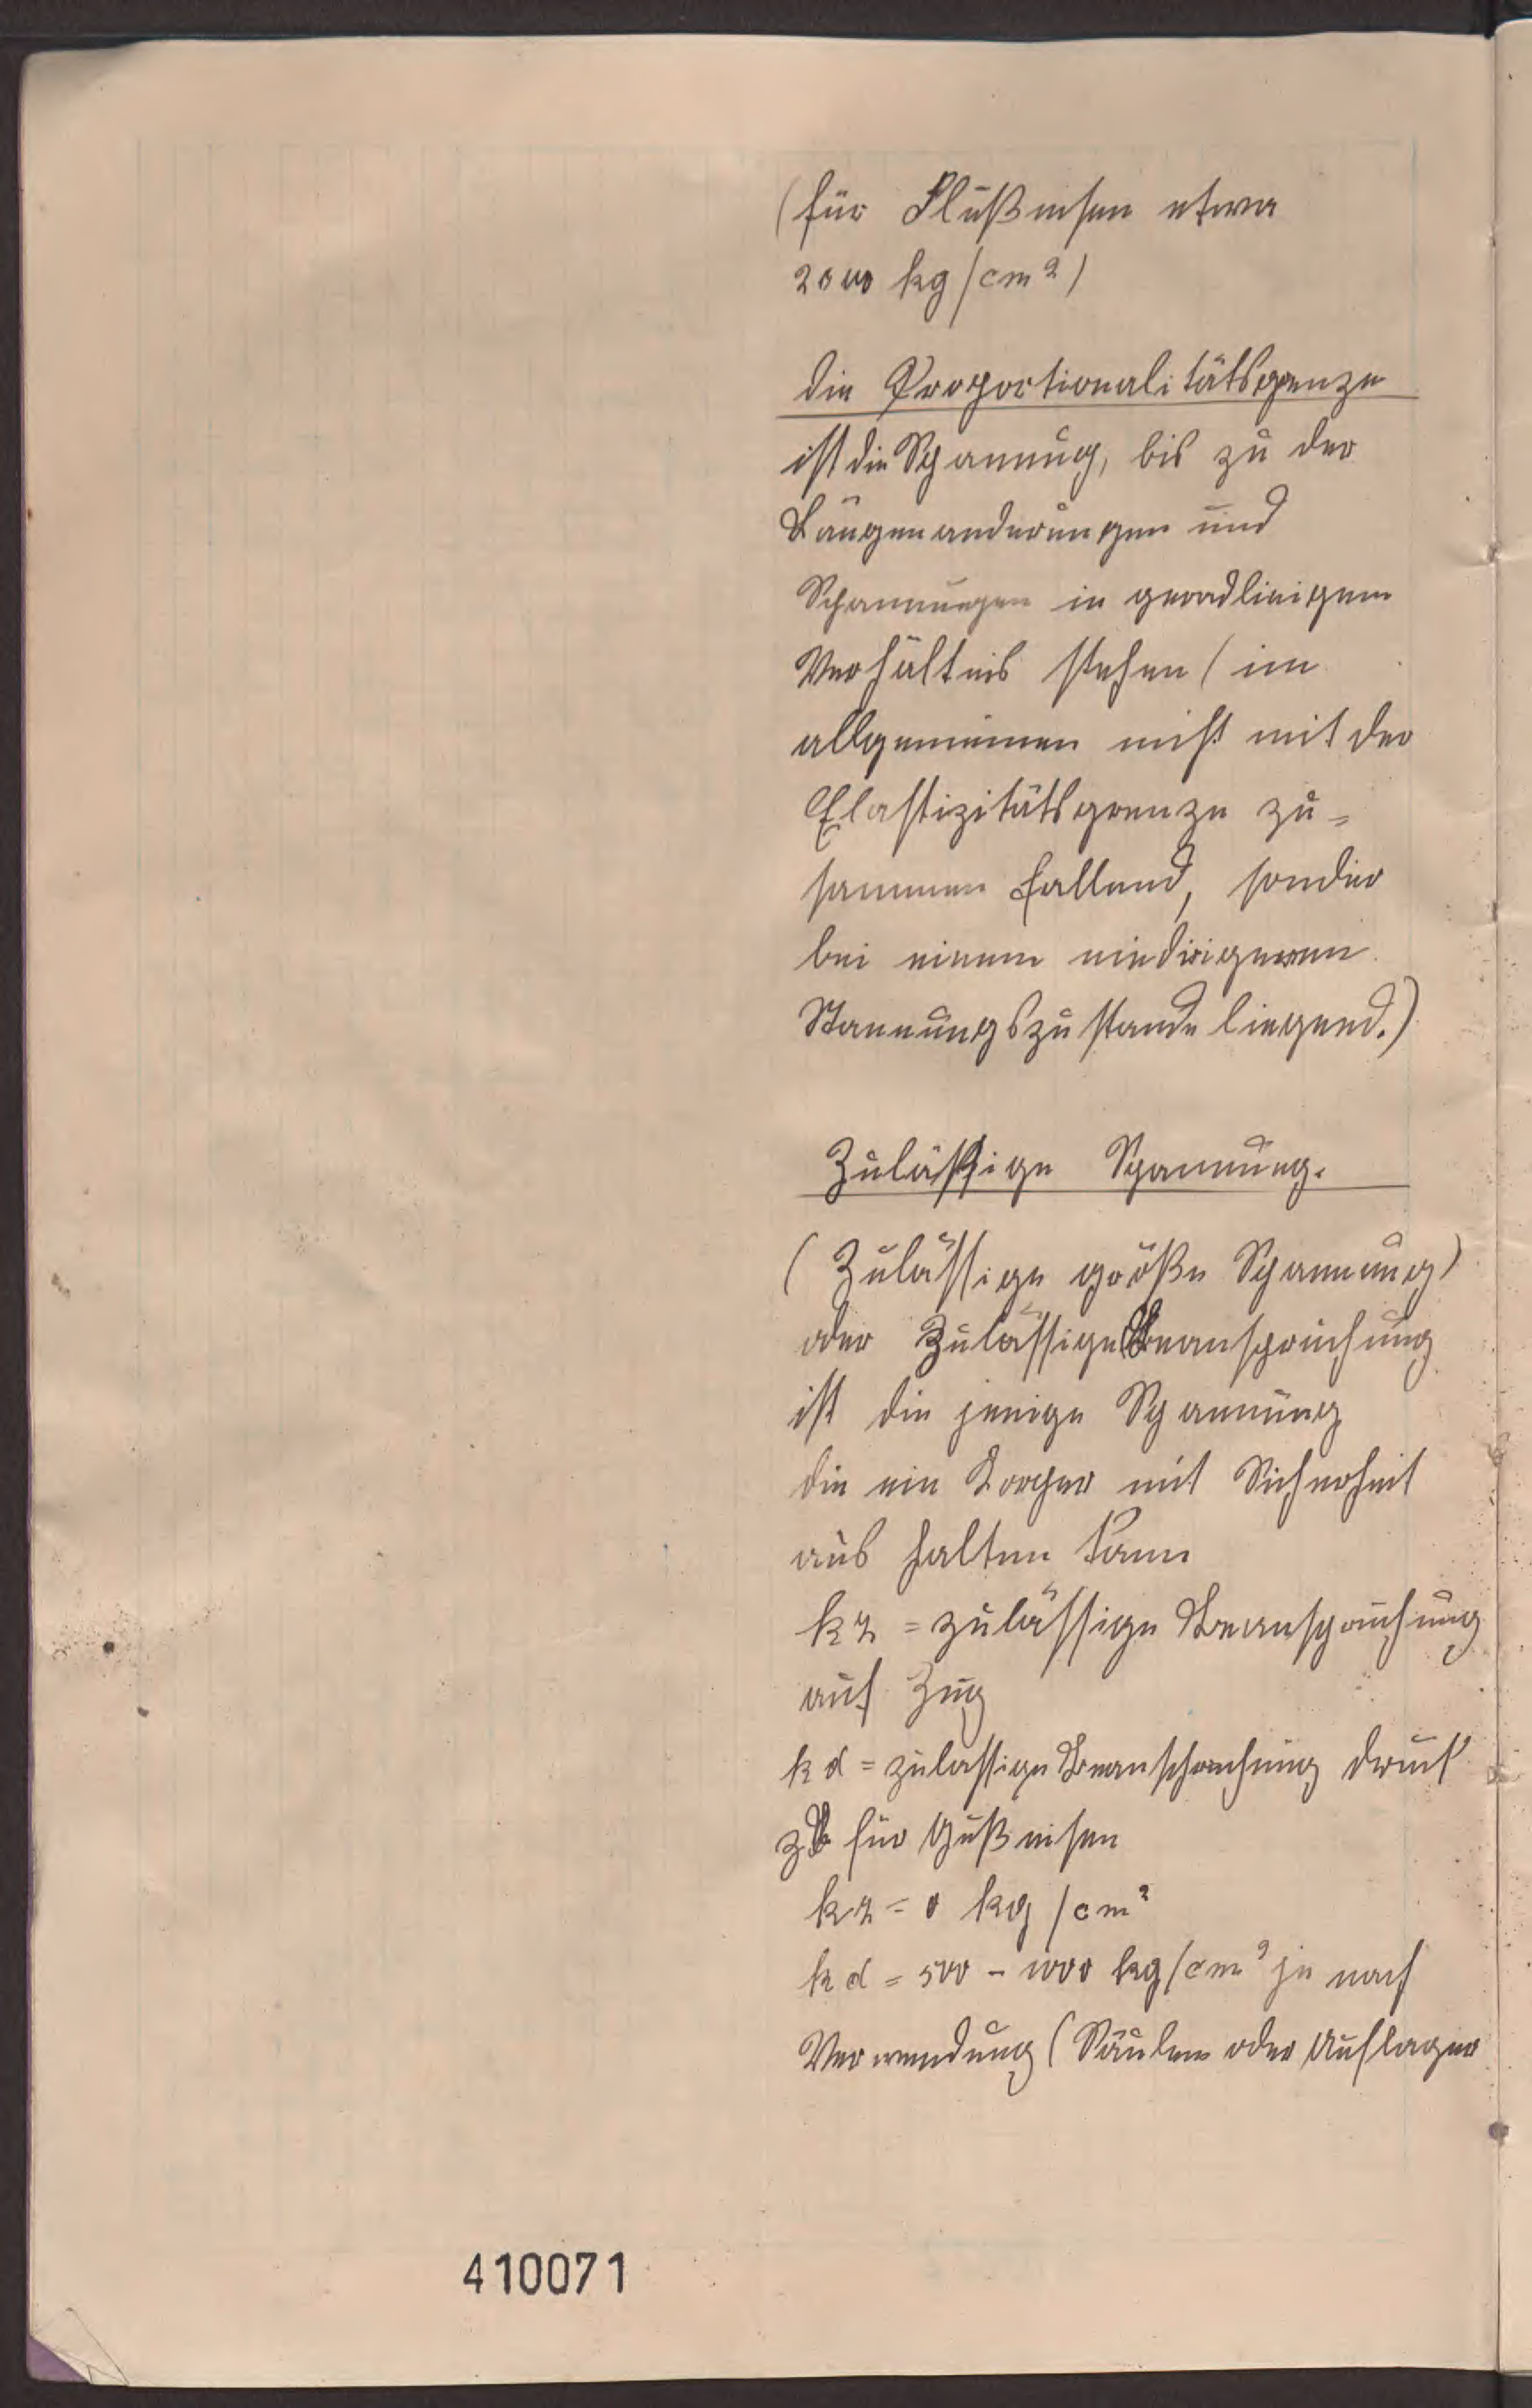 (für Flußeisen etwa
2000 kg/cm²)
die Proportionalitätsgrenze
ist die Spannung, bis zu der
Längenanderungen und
Spannungen in geradlinigem
Verhältnis stehen (im
allgemeinen nicht mit der
Elastizitätsgrenze zu=
sammen fallend, sonder
bei einem niedrigeren
Stannungszustande liegend.)
Zuläßige Spannung.
(Zulässige größe Spannung)
oder Zulässige Beanspruchung
ist die jenige Spannung
die ein Korper mit Sicherheit
aus halten kann
kz = zulässige Beanspruchung
auf Zug
kd = zulassige Beanspruchung druck
zB für Gußeisen
kz = 0 kg/cm²
kd = 500 - 1000 kg/cm² je nach
Verwendung (Säulen oder Auflager
410071